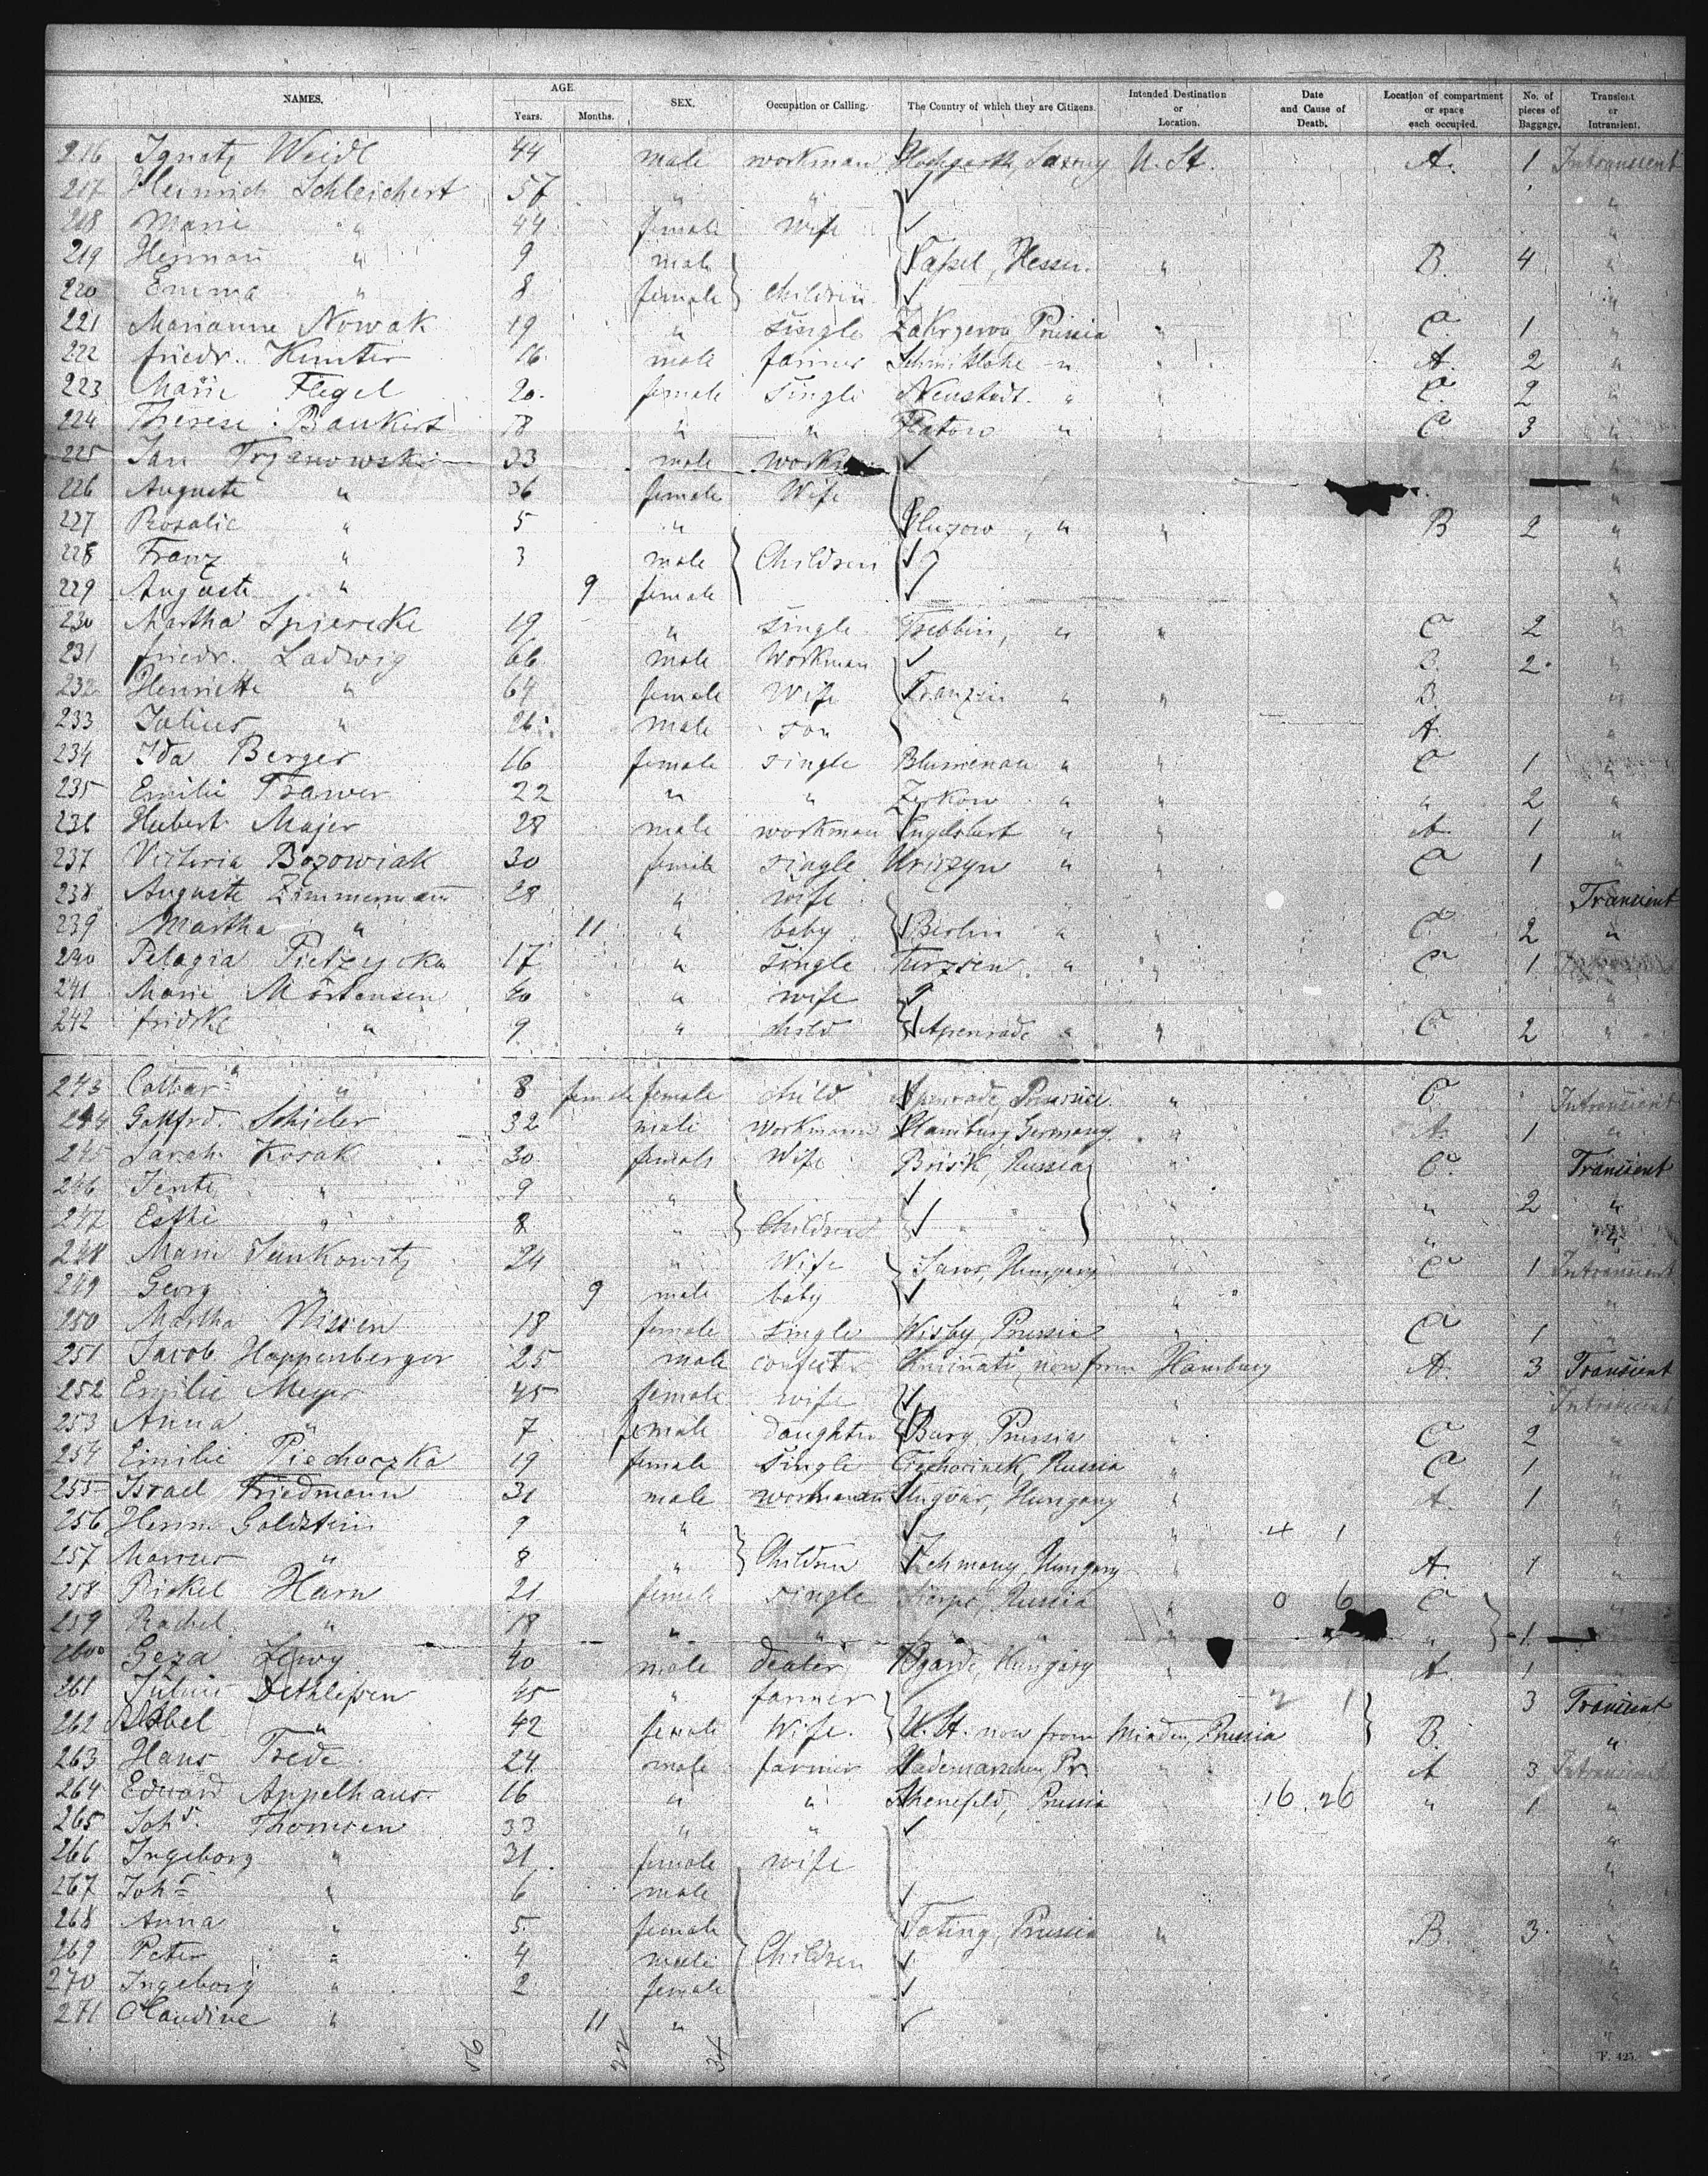 NAMES. AGE Years. Months. SEX. Occupation or Calling. The Country of which they are Citizens. Intended Destination or Location. Date and Cause of Death. Location of compartment or space each occupied. No. of pieces of Baggage. Transient or Intransient.
216 Ignatz Weidl 44 male workman Saxony U. St. A. 1 Intransient
217 Heinrich Schleichert 57 " " "
218 Marie " 44 female Wife "
219 Herman " 9 male Cassel, Hessen. " B. 4 "
220 Emma " 8 female Children "
221 Marianne Nowak 19 " single Zakrzewo Prussia " C. 1 "
222 friedr. 16 male farmer " " A. 2 "
223 Marie Flegel 20 female single Neustadt. " " C. 2 "
224 Therese Bankert 18 " " Flatow " " C 3 "
225 Jan Trzanowski 33 male "
226 Auguste " 36 female Wife "
227 Rosalie " 5 " " " B 2 "
228 Franz " 3 male Children "
229 Auguste " 9 female "
230 Martha 19 " single Trebbin, " " C 2 "
231 friedr. Ladwig 66 male Workman B. 2 "
232 Henriette " 64 female Wife " " B. "
233 Julius " 26 male son A. "
234 Ida Berger 16 female single Blumenau " " C 1 "
235 Emilie 22 " " Zerkow " " " 2 "
236 Hubert Majer 28 male workman " " A. 1 "
237 Victoria Bozowiak 30 female single " C 1 "
238 Auguste Zimmermann 28 " wife Transient
239 Martha " 11 " baby Berlin " " C. 2 "
240 Pelagia 17 " single " " C 1
241 Marie Mortensen 40 " wife "
242 " 9 " child Apenrade " " C 2 "
243 " 8 female female child Apenrade, Prussia " C. Intransient
244 Gottfrd. Schieler 32 male workman Hamburg Germany. " A. 1 "
245 Sarah Kosak 30 female Wife Brisk, Russia " C. Transient
246 Jente " 9 " " 2 "
247 Esthe " 8 " Children " "
248 Jankowitz 24 " Wife Hungary " C 1 Intransient
249 Georg " 9 male baby " "
250 Martha Nissen 18 female single Wisby, Prussia " C 1 "
251 Jacob Happenberger 25 male now from Hamburg A. 3 Transient
252 Emilie Meyer 45 female wife " Intransient
253 Anna " 7 female daughter Burg, Prussia " C 2 "
254 Emilie Piechoczka 19 female single Ciechocinek, Russia " C 1 "
255 Israel Friedmann 31 male workman Ungvar, Hungary " A. 1 "
256 Herm. Goldstein 9 " " 4 1 "
257 Marcus " 8 " Children Hungary " A. 1 "
258 Rickel Harn 21 female single Russia " 0 6 C "
259 Rachel " 18 " " " " 1
260 Geza Lewy 40 male dealer Hungary " A. 1 "
261 Julius Dethlefsen 45 " farmer 2 1 3 Transient
262 Abel " 42 female Wife. U. St. now from Minden, Prussia B. "
263 Hans Trede 24 male farmer Hademarschen, Pr. " A 3 Intransient
264 Eduard Appelhaus 16 " " Prussia 16 26 " 1 "
265 Joh's. Thomsen 33 " " "
266 Ingeborg " 31 female wife "
267 Joh's " 6 male
268 Anna " 5 female Tating, Prussia " B. 3 "
269 Peter " 4 male Children "
270 Ingeborg " 2 female "
271 Claudine " 11 " "
56 22 34
F. 425.